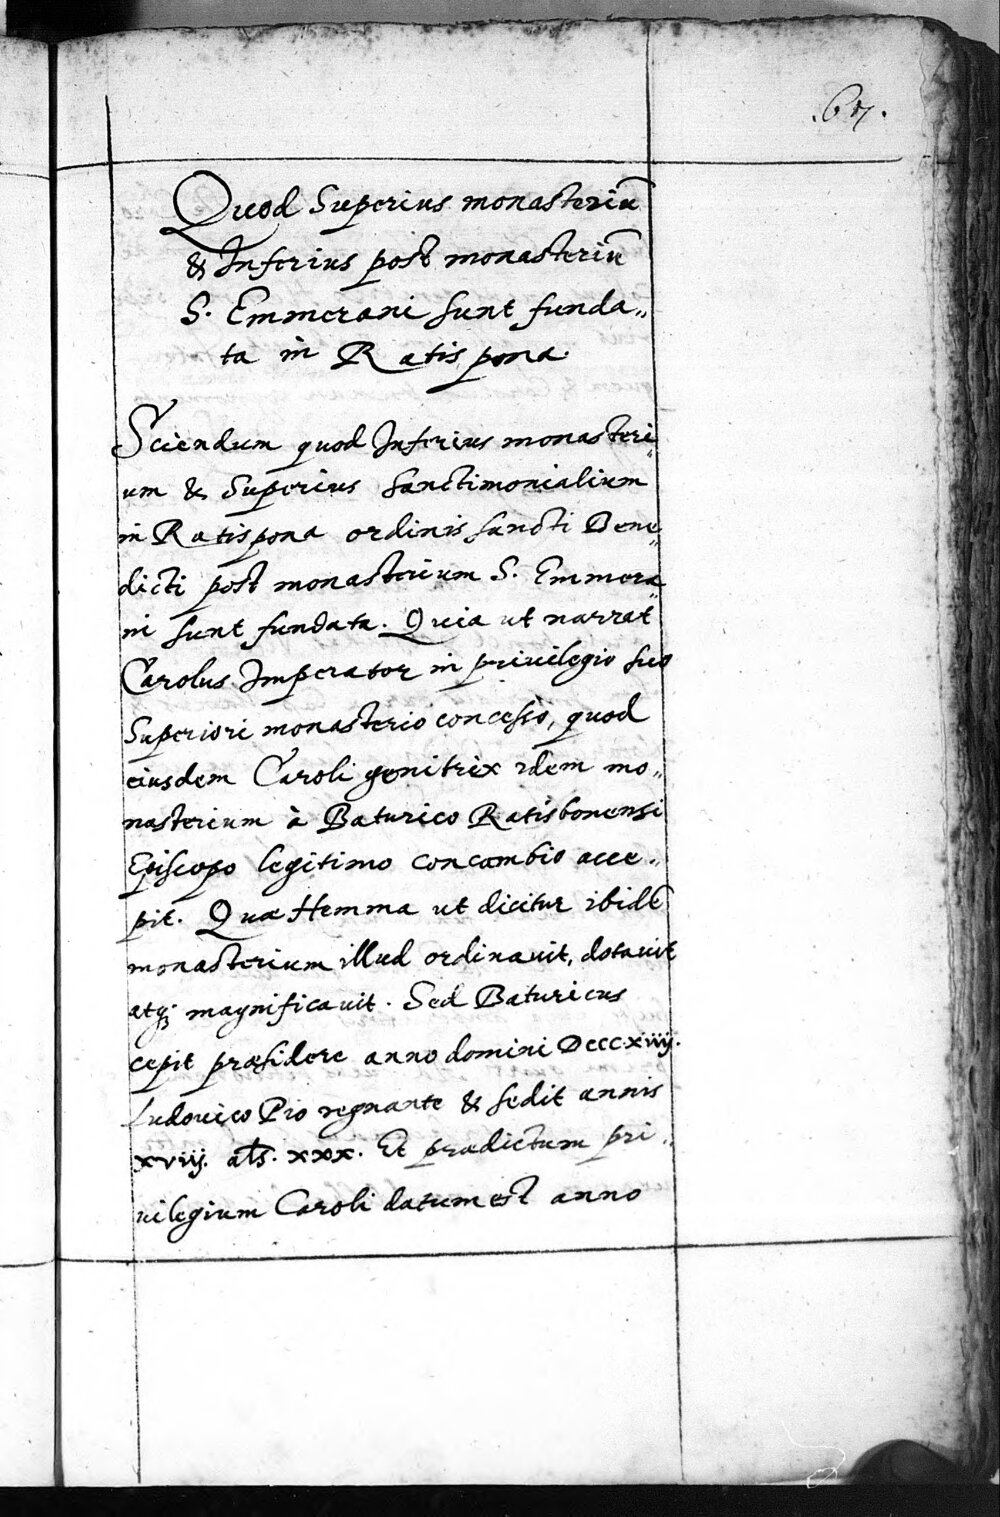 .67.
Quod Superius monasteriũ
& Inferius post monasteriũ
S. Emmerani sunt funda„
ta in Ratispona.
Sciendum quod Inferius monasteri„
um & Superius sanctimonialium
in Ratispona ordinis sancti Bene„
dicti post monasterium S. Emmera„
ni sunt fundata. Quia ut narrat
Carolus Imperator in priuilegio suo
Superiori monasterio concesso, quod
eiusdem Caroli genitrix idem mo„
nasterium à Baturico Ratisbonensi
Episcopo legitimo concambio acce„
pit. Quæ Hemma ut dicitur ibidẽ
monasterium illud ordinauit, dotauit
atq; magnificauit. Sed Baturicus
cepit præsidere anno domini Dcccxiiij.
Ludouico Pio regnante & sedit annis
xviij. als. xxx. Et prædictum pri„
uilegium Caroli datum est anno